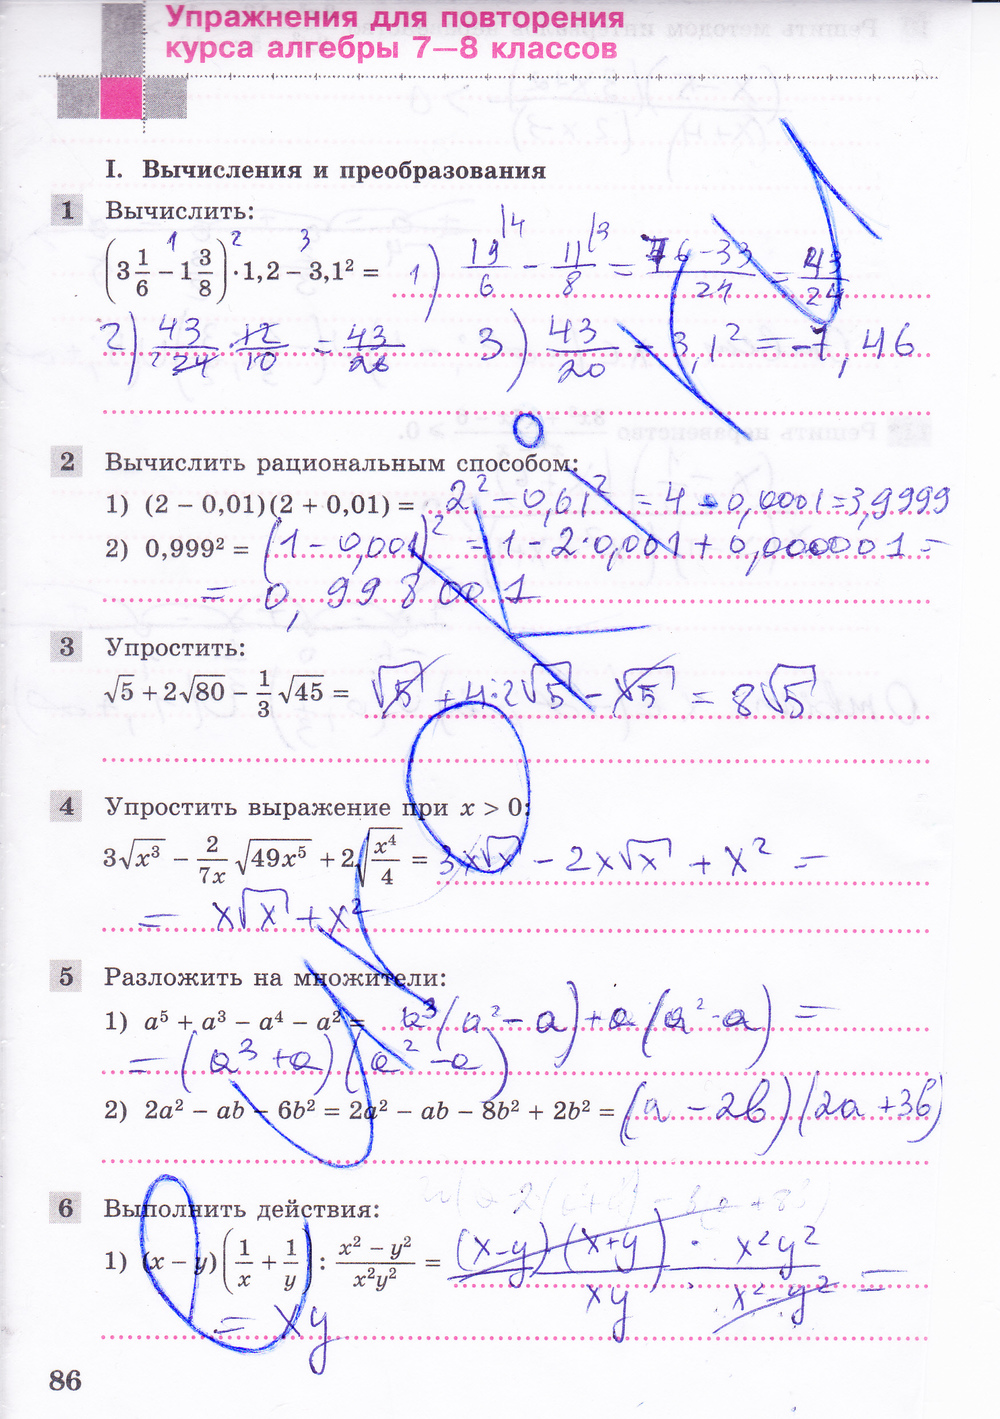 Упражнения для повторения
курса алгебры 7—8 классов
I. Вычисления и преобразования
1 Вычислить:
(3 1/6 − 1 3/8) · 1,2 − 3,1² = 1) 19/6 − 11/8 = 76−33/24 = 43/24
2) 43/24 · 12/10 = 43/20 3) 43/20 − 3,1² = −7,46
2 Вычислить рациональным способом:
1) (2 − 0,01)(2 + 0,01) = 2² − 0,01² = 4 − 0,0001 = 3,9999
2) 0,999² = (1 − 0,001)² = 1 − 2·0,001 + 0,000001 =
= 0,998001
3 Упростить:
√5 + 2√80 − 1/3 √45 = √5 + 4·2√5 − √5 = 8√5
4 Упростить выражение при x > 0:
3√x³ − 2/7x √49x⁵ + 2√x⁴/4 = 3x√x − 2x√x + x² =
= x√x + x²
5 Разложить на множители:
1) a⁵ + a³ − a⁴ − a² = a³(a² − a) + a(a² − a) =
= (a³ + a)(a² − a)
2) 2a² − ab − 6b² = 2a² − ab − 8b² + 2b² = (a − 2b)(2a + 3b)
6 Выполнить действия:
1) (x − y)(1/x + 1/y) : x² − y²/x²y² = (x−y)(x+y)/xy · x²y²/x²−y² =
= xy
86